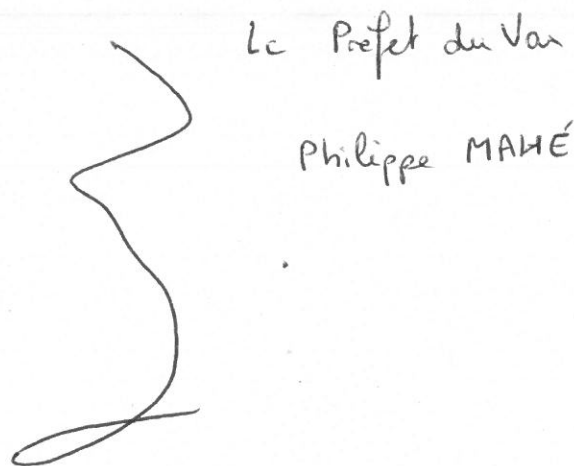 Le Préfet du Var
Philippe MAHÉ